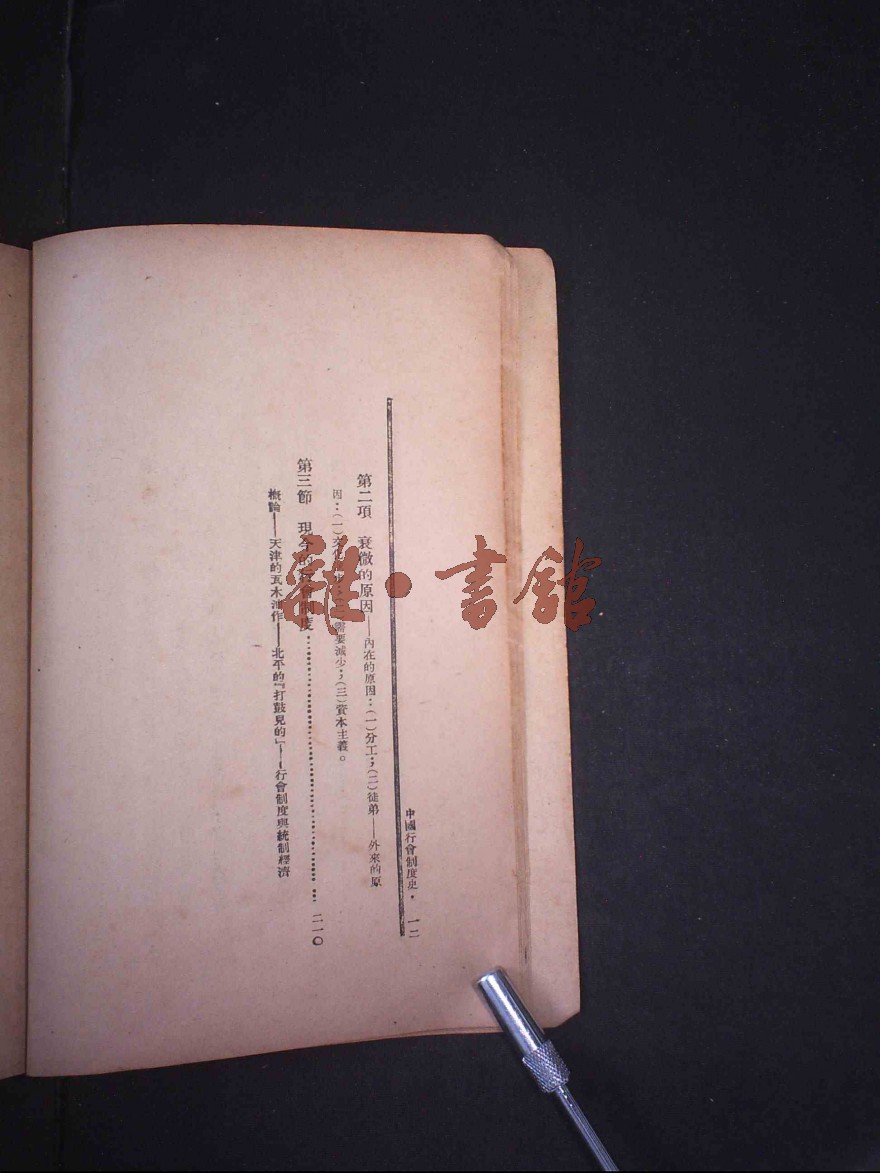 中國行會制度史. 一二
第二項 衰微的原因——內在的原因：(一)分工；(二)徒弟——外來的原
因：(一)文化 需要減少；(三)資本主義。
第三節 現今的行會制度 二一〇
概論——天津的瓦木油作——北平的『打鼓見的』——行會制度與統制經濟
雜·書館